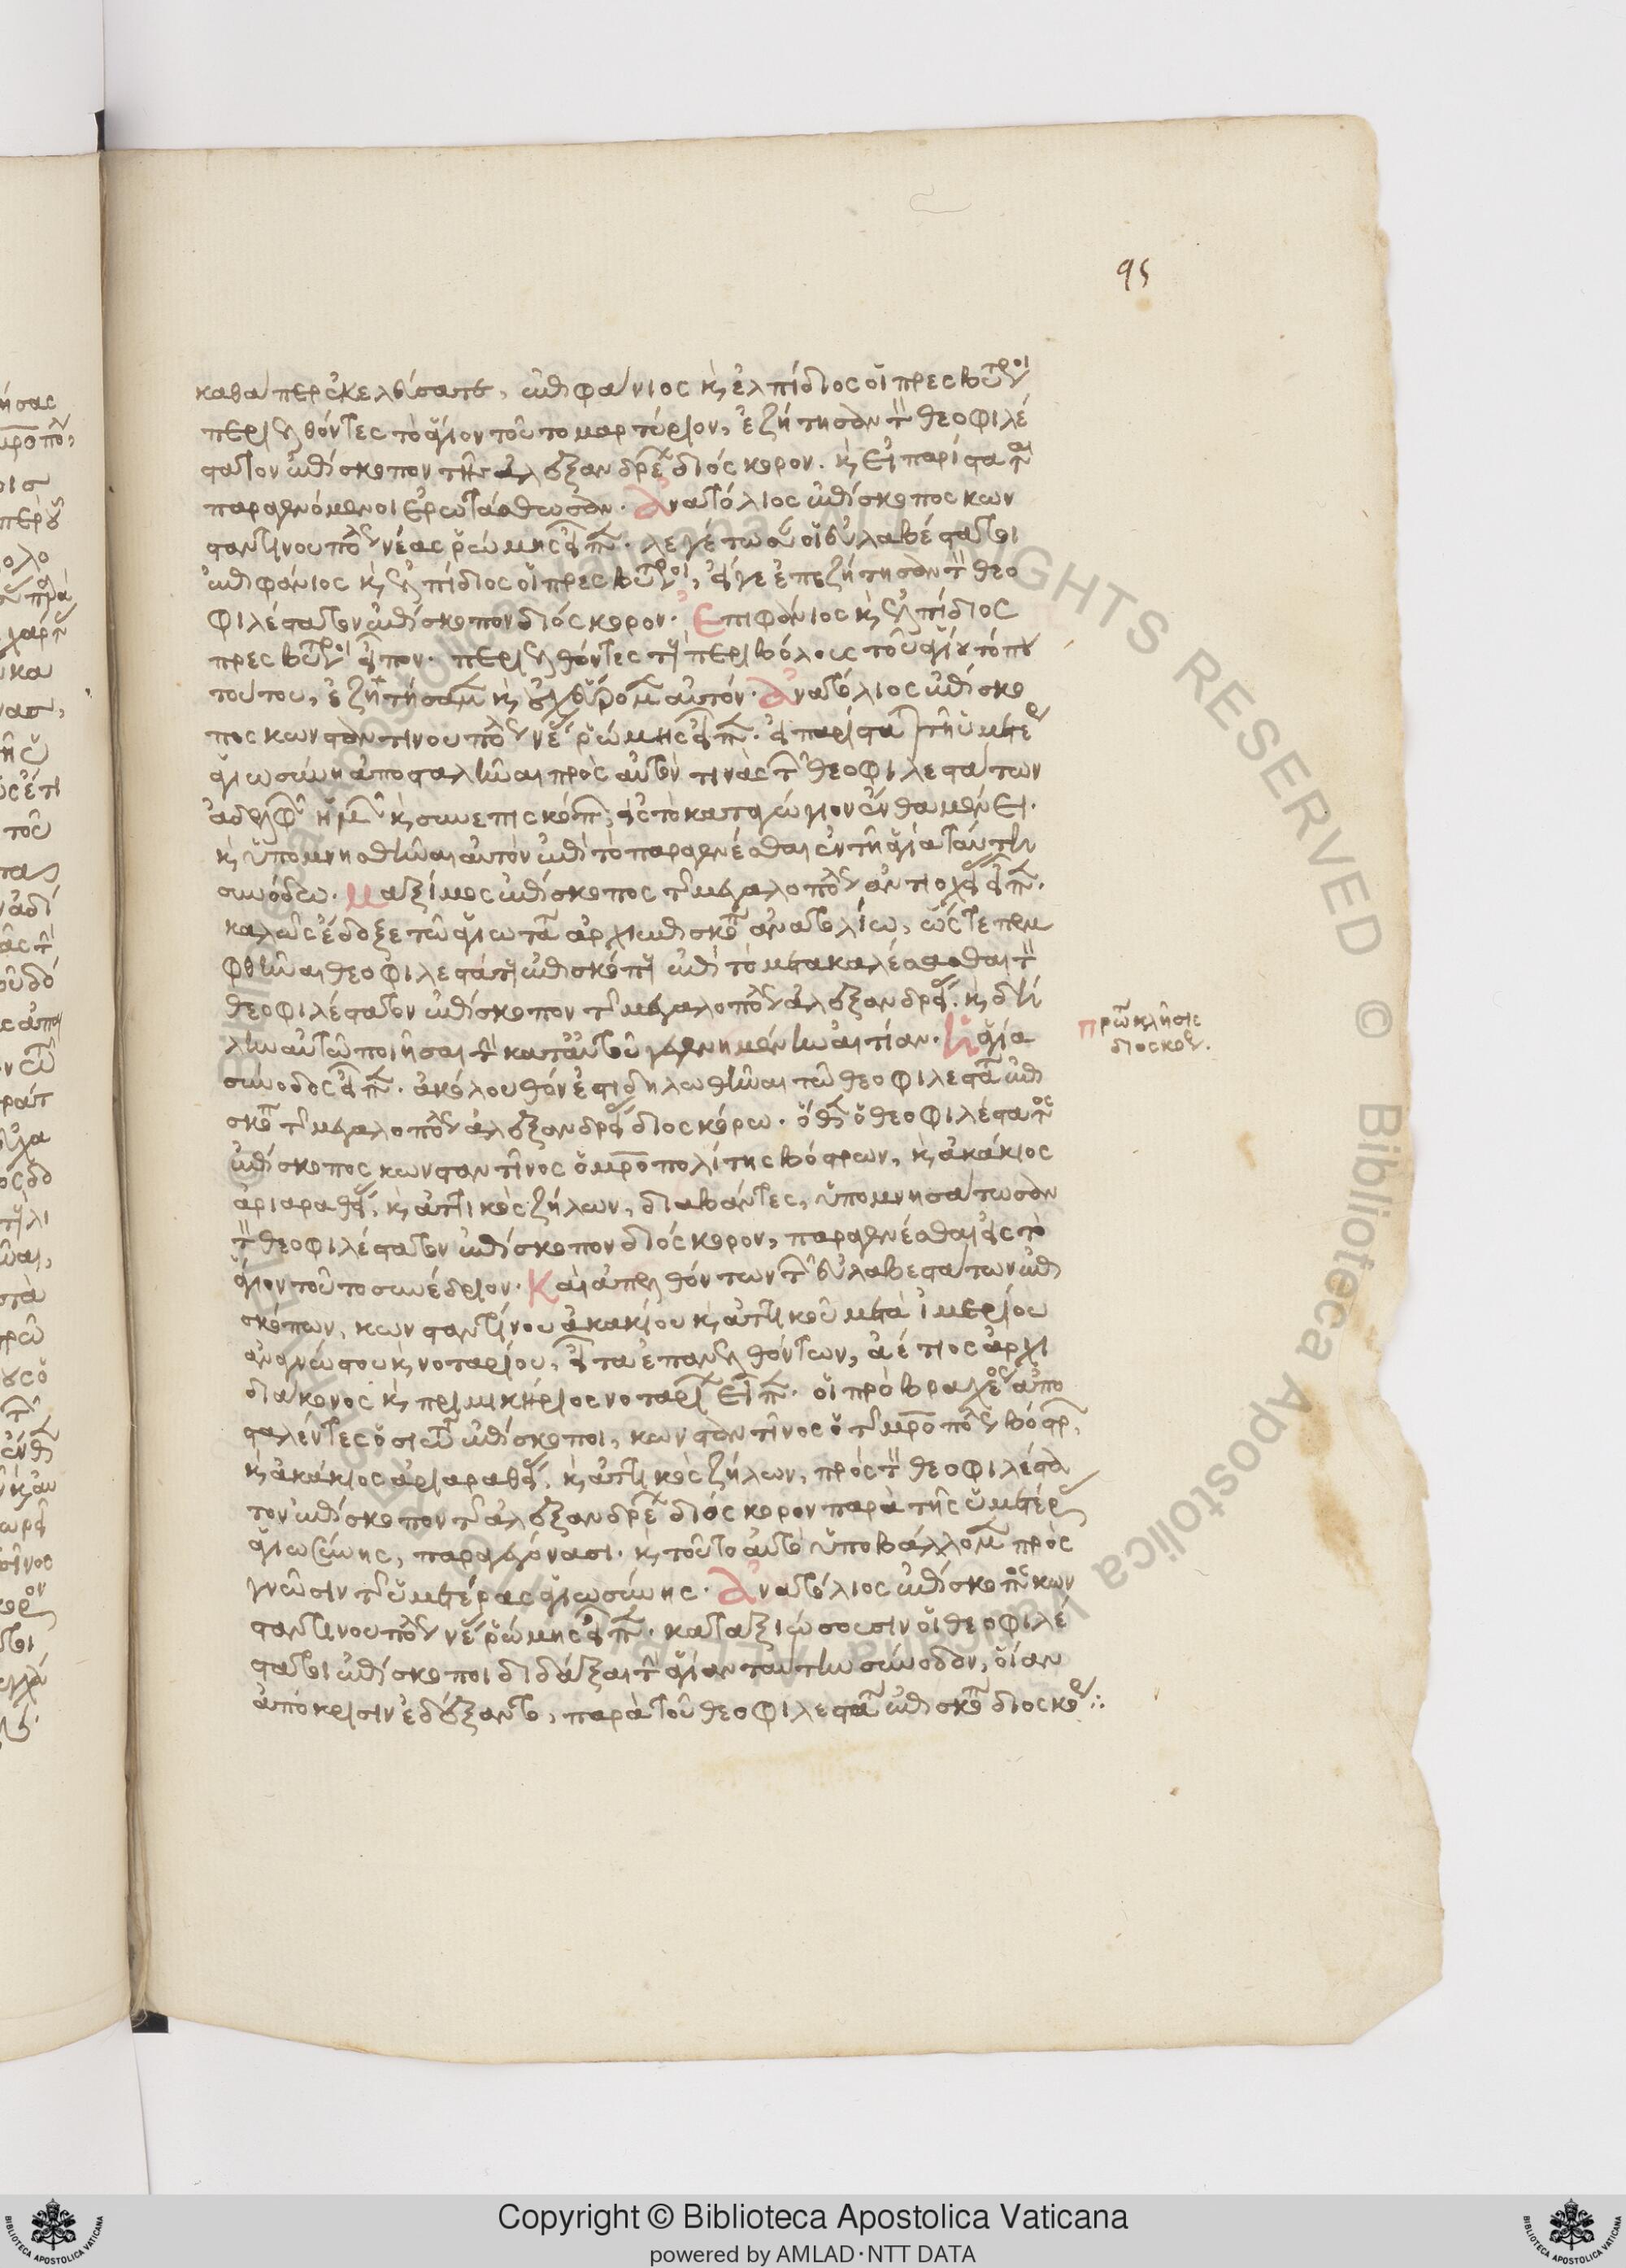 95
καθάπερ ἐκελεύσατε, ἐπιφάνιος κ(αὶ) ἐλπίδιος οἱ πρεσβύτεροι
περιελθόντες τὸ ἅγιον τοῦτο μαρτύριον, ἐζήτησαν τὸν θεοφιλέ
στατον ἐπίσκοπον τῆς ἀλεξανδρέων διόσκορον. κ(αὶ) εἰ παρίσταται
παραγενόμενοι ἐρωτάσθωσαν. Ἀνατόλιος ἐπίσκοπος κων
σταντινουπόλεως νέας ῥώμης εἶπεν. λεγέτωσαν οἱ εὐλαβέστατοι
ἐπιφάνιος κ(αὶ) ἐλπίδιος οἱ πρεσβύτεροι, εἴγε ἐπεζήτησαν τὸν θεο
φιλέστατον ἐπίσκοπον διόσκορον. Ἐπιφάνιος κ(αὶ) ἐλπίδιος
πρεσβύτεροι εἶπον. περιελθόντες τοὺς περιβόλους τοῦ ἁγίου τόπου
τούτου, ἐζητήσαμεν κ(αὶ) οὐχ εὕρομεν αὐτόν. Ἀνατόλιος ἐπίσκο
πος κωνσταντινουπόλεως νέας ῥώμης εἶπεν. εἰ παρίσταται τῇ ὑμετέρᾳ
ἁγιωσύνῃ ἀποσταλῆναι πρὸς αὐτὸν τινὰς τῶν θεοφιλεστάτων
ἀδελφῶν ἡμῶν κ(αὶ) συνεπισκόπων, εἰς τὸ καταγώγιον ἔνθα μένει.
κ(αὶ) ὑπομνησθῆναι αὐτὸν ἐπὶ τὸ παραγενέσθαι ἐν τῇ ἁγίᾳ ταύτῃ
συνόδῳ. Μαξίμος ἐπίσκοπος τῆς μεγαλοπόλεως ἀντιοχείας εἶπεν.
καλῶς ἔδοξε τῷ ἁγιωτάτῳ ἀρχιεπισκόπῳ ἀνατολίῳ, ὥστε πεμ
φθῆναι θεοφιλεστάτους ἐπισκόπους ἐπὶ τὸ μετακαλέσασθαι τὸν
θεοφιλέστατον ἐπίσκοπον τῆς μεγαλοπόλεως ἀλεξανδρείας. κ(αὶ) δή
λην αὐτῷ ποιῆσαι τὴν κατ' αὐτοῦ γεγενημένην αἰτίαν. Ἡ ἁγία
σύνοδος εἶπεν. ἀκόλουθόν ἐστι δηλωθῆναι τῷ θεοφιλεστάτῳ ἐπι
σκόπῳ τῆς μεγαλοπόλεως ἀλεξανδρείας διοσκόρῳ. ὅθεν ὁ θεοφιλέστατος
ἐπίσκοπος κωνσταντῖνος ὁ μητροπολίτης βόστρων, κ(αὶ) ἀκάκιος
ἀριαραθείας, κ(αὶ) ἀττικὸς ζήλων, διαβάντες, ὑπομνησάτωσαν
τὸν θεοφιλέστατον ἐπίσκοπον διόσκορον, παραγενέσθαι εἰς τὸ
ἅγιον τοῦτο συνέδριον. Καὶ ἀπελθόντων τῶν εὐλαβεστάτων ἐπι
σκόπων, κωνσταντίνου ἀκακίου κ(αὶ) ἀττικοῦ μετὰ ἱμερίου
ἀναγνώστου κ(αὶ) νοταρίου, εἶτα ἐπανελθόντων, ἀέτιος ἀρχι
διάκονος κ(αὶ) πριμικήριος νοταρίων εἶπεν. οἱ πρὸ βραχέος ἀπο
σταλέντες ὁσιώτατοι ἐπίσκοποι, κωνσταντῖνος ὁ τῆς μητροπόλεως βόστρων,
κ(αὶ) ἀκάκιος ἀριαραθείας, κ(αὶ) ἀττικὸς ζήλων, πρὸς τὸν θεοφιλέστα
τον ἐπίσκοπον τῆς ἀλεξανδρέων διόσκορον παρὰ τῆς ὑμετέρας
ἁγιωσύνης, παραγεγόνασι. κ(αὶ) τοῦτο αὐτὸ ὑποβάλλομεν πρὸς
γνῶσιν τῆς ὑμετέρας ἁγιωσύνης. Ἀνατόλιος ἐπίσκοπος κων
σταντινουπόλεως νέας ῥώμης εἶπεν. καταξιώσουσιν οἱ θεοφιλέ
στατοι ἐπίσκοποι διδάξαι τὴν ἁγίαν ταύτην σύνοδον, οἵαν
ἀπόκρισιν ἐδέξαντο, παρὰ τοῦ θεοφιλεστάτου ἐπισκόπου διοσκόρου:
πρώτη κλῆσις
διοσκόρου.
Copyright © Biblioteca Apostolica Vaticana
powered by AMLAD·NTT DATA